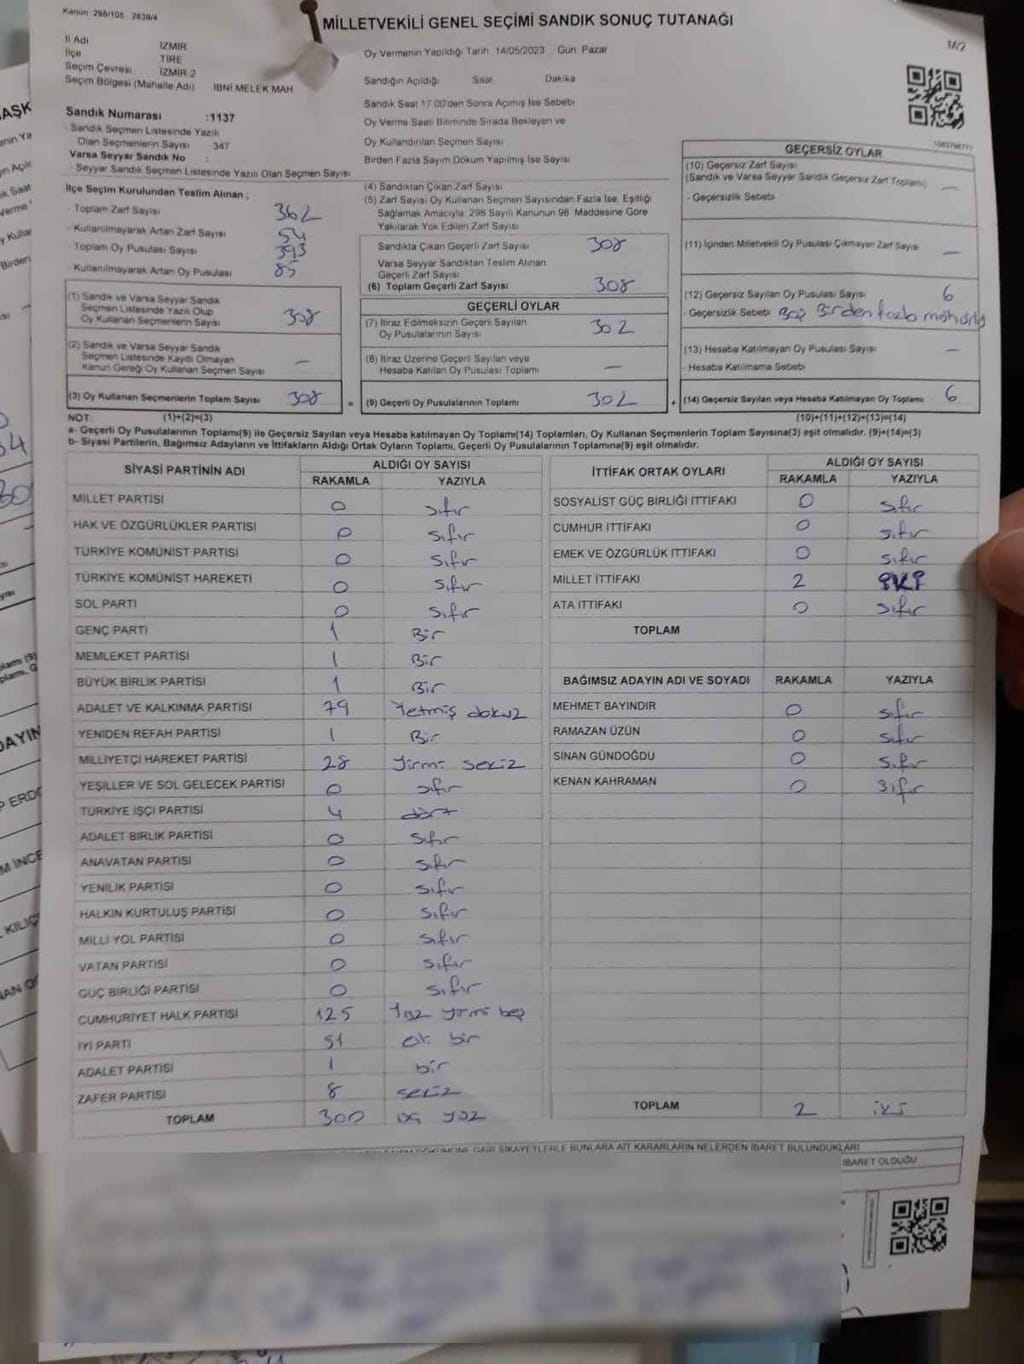 Kanun 298/105 2839/4
MİLLETVEKİLİ GENEL SEÇİMİ SANDIK SONUÇ TUTANAĞI
M/2
İl Adı İZMİR
İlçe TİRE
Seçim Çevresi İZMİR-2
Seçim Bölgesi (Mahalle Adı) İBNİ MELEK MAH
Sandık Numarası :1137
Sandık Seçmen Listesinde Yazılı
Olan Seçmenlerin Sayısı 347
Varsa Seyyar Sandık No :
Seyyar Sandık Seçmen Listesinde Yazılı Olan Seçmen Sayısı
Oy Vermenin Yapıldığı Tarih 14/05/2023 Gün Pazar
Sandığın Açıldığı Saat Dakika
Sandık Saat 17.00'den Sonra Açılmış İse Sebebi
Oy Verme Saati Bitiminde Sırada Bekleyen ve
Oy Kullandırılan Seçmen Sayısı
Birden Fazla Sayım Döküm Yapılmış İse Sayısı
İlçe Seçim Kurulundan Teslim Alınan ;
- Toplam Zarf Sayısı 362
- Kullanılmayarak Artan Zarf Sayısı 54
- Toplam Oy Pusulası Sayısı 393
- Kullanılmayarak Artan Oy Pusulası 85
(1) Sandık ve Varsa Seyyar Sandık
Seçmen Listesinde Yazılı Olup
Oy Kullanan Seçmenlerin Sayısı 308
(2) Sandık ve Varsa Seyyar Sandık
Seçmen Listesinde Kaydı Olmayan
Kanun Gereği Oy Kullanan Seçmen Sayısı —
(3) Oy Kullanan Seçmenlerin Toplam Sayısı 308 =
(4) Sandıktan Çıkan Zarf Sayısı
(5) Zarf Sayısı Oy Kullanan Seçmen Sayısından Fazla İse, Eşitliği
Sağlamak Amacıyla, 298 Sayılı Kanunun 98. Maddesine Göre
Yakılarak Yok Edilen Zarf Sayısı
Sandıkta Çıkan Geçerli Zarf Sayısı 308
Varsa Seyyar Sandıktan Teslim Alınan
Geçerli Zarf Sayısı
(6) Toplam Geçerli Zarf Sayısı 308
GEÇERLİ OYLAR
(7) İtiraz Edilmeksizin Geçerli Sayılan
Oy Pusulalarının Sayısı 302
(8) İtiraz Üzerine Geçerli Sayılan veya
Hesaba Katılan Oy Pusulası Toplamı —
(9) Geçerli Oy Pusulalarının Toplamı 302 +
GEÇERSİZ OYLAR
(10) Geçersiz Zarf Sayısı
(Sandık ve Varsa Seyyar Sandık Geçersiz Zarf Toplamı) —
- Geçersizlik Sebebi
(11) İçinden Milletvekili Oy Pusulası Çıkmayan Zarf Sayısı —
(12) Geçersiz Sayılan Oy Pusulası Sayısı 6
- Geçersizlik Sebebi Boş Birden fazla
(13) Hesaba Katılmayan Oy Pusulası Sayısı —
- Hesaba Katılmama Sebebi
(14) Geçersiz Sayılan veya Hesaba Katılmayan Oy Toplamı 6
NOT: (1)+(2)=(3)
(10)+(11)+(12)+(13)=(14)
a- Geçerli Oy Pusulalarının Toplamı(9) ile Geçersiz Sayılan veya Hesaba katılmayan Oy Toplamı(14) Toplamları, Oy Kullanan Seçmenlerin Toplam Sayısına(3) eşit olmalıdır. (9)+(14)=(3)
b- Siyasi Partilerin, Bağımsız Adayların ve İttifakların Aldığı Ortak Oyların Toplamı, Geçerli Oy Pusulalarının Toplamına(9) eşit olmalıdır.
SİYASİ PARTİNİN ADI ALDIĞI OY SAYISI
RAKAMLA YAZIYLA
MİLLET PARTİSİ 0 sıfır
HAK VE ÖZGÜRLÜKLER PARTİSİ 0 sıfır
TÜRKİYE KOMÜNİST PARTİSİ 0 sıfır
TÜRKİYE KOMÜNİST HAREKETİ 0 sıfır
SOL PARTİ 0 sıfır
GENÇ PARTİ 1 Bir
MEMLEKET PARTİSİ 1 Bir
BÜYÜK BİRLİK PARTİSİ 1 Bir
ADALET VE KALKINMA PARTİSİ 79 Yetmiş dokuz
YENİDEN REFAH PARTİSİ 1 Bir
MİLLİYETÇİ HAREKET PARTİSİ 28 Yirmi sekiz
YEŞİLLER VE SOL GELECEK PARTİSİ 0 sıfır
TÜRKİYE İŞÇİ PARTİSİ 4 dört
ADALET BİRLİK PARTİSİ 0 sıfır
ANAVATAN PARTİSİ 0 sıfır
YENİLİK PARTİSİ 0 sıfır
HALKIN KURTULUŞ PARTİSİ 0 sıfır
MİLLİ YOL PARTİSİ 0 sıfır
VATAN PARTİSİ 0 sıfır
GÜÇ BİRLİĞİ PARTİSİ 0 sıfır
CUMHURİYET HALK PARTİSİ 125 Yüz yirmi beş
İYİ PARTİ 51 elli bir
ADALET PARTİSİ 1 bir
ZAFER PARTİSİ 8 sekiz
TOPLAM 300 üç yüz
İTTİFAK ORTAK OYLARI ALDIĞI OY SAYISI
RAKAMLA YAZIYLA
SOSYALİST GÜÇ BİRLİĞİ İTTİFAKI 0 sıfır
CUMHUR İTTİFAKI 0 sıfır
EMEK VE ÖZGÜRLÜK İTTİFAKI 0 sıfır
MİLLET İTTİFAKI 2 iki
ATA İTTİFAKI 0 sıfır
TOPLAM
BAĞIMSIZ ADAYIN ADI VE SOYADI RAKAMLA YAZIYLA
MEHMET BAYINDIR 0 sıfır
RAMAZAN ÜZÜN 0 sıfır
SİNAN GÜNDOĞDU 0 sıfır
KENAN KAHRAMAN 0 sıfır
TOPLAM 2 iki
ŞİKAYETLERLE BUNLARA AİT KARARLARIN NELERDEN İBARET BULUNDUKLARI
İBARET OLDUĞU